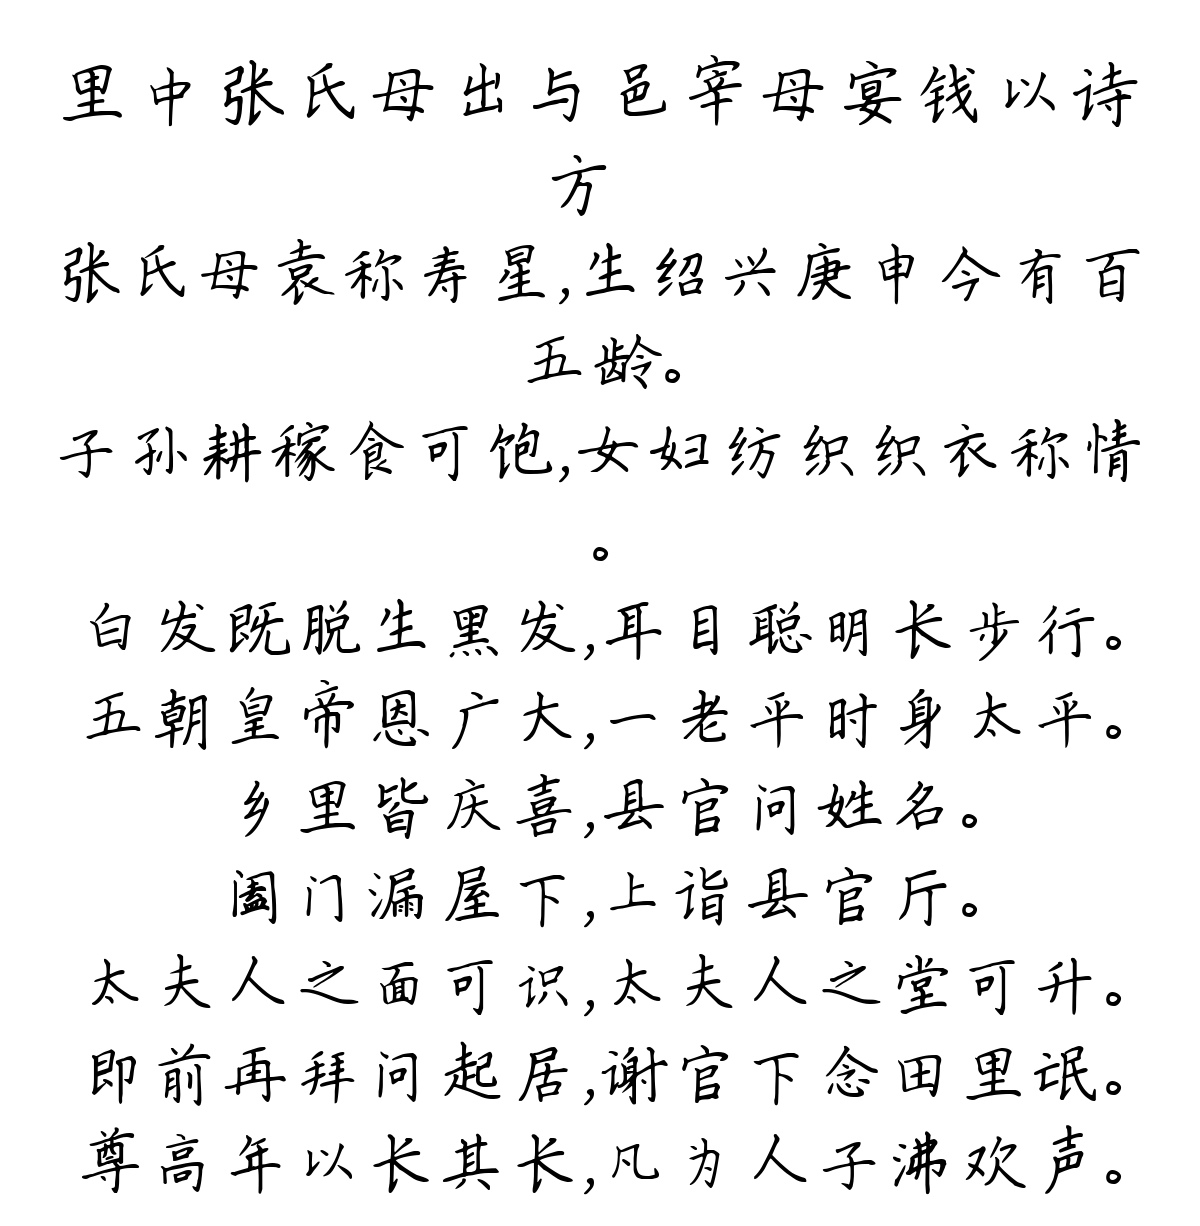 里中张氏母出与邑宰母宴钱以诗
方
张氏母袁称寿星,生绍兴庚申今有百
五龄。
子孙耕稼食可饱,女妇纺织织衣称情
。
白发既脱生黑发,耳目聪明长步行。
五朝皇帝恩广大,一老平时身太平。
乡里皆庆喜,县官问姓名。
阖门漏屋下,上诣县官厅。
太夫人之面可识,太夫人之堂可升。
即前再拜问起居,谢官下念田里氓。
尊高年以长其长,凡为人子沸欢声。